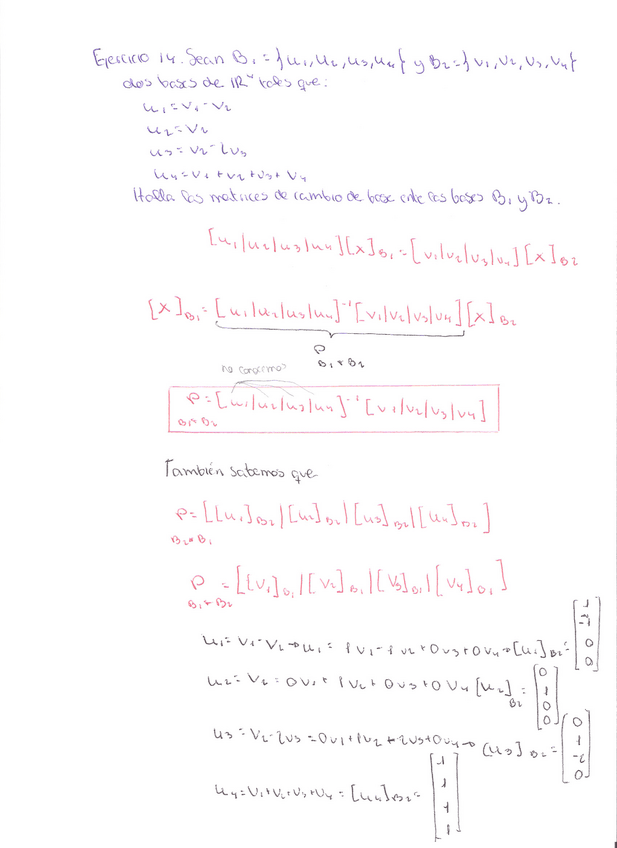 Ejercicio 14. Sean B₁ = {u₁, u₂, u₃, u₄} y B₂ = {v₁, v₂, v₃, v₄}
dos bases de IR⁴ tales que:
u₁ = v₁ - v₂
u₂ = v₂
u₃ = v₂ - 2v₃
u₄ = v₁ + v₂ + v₃ + v₄
Halla las matrices de cambio de base entre las bases B₁ y B₂.
[u₁|u₂|u₃|u₄][x]B₁ = [v₁|v₂|v₃|v₄][x]B₂
[x]B₁ = [u₁|u₂|u₃|u₄]⁻¹[v₁|v₂|v₃|v₄][x]B₂
P
B₁←B₂
no conocemos
P = [u₁|u₂|u₃|u₄]⁻¹[v₁|v₂|v₃|v₄]
B₁←B₂
También sabemos que
P = [[u₁]B₂|[u₂]B₂|[u₃]B₂|[u₄]B₂]
B₂←B₁
P = [[v₁]B₁|[v₂]B₁|[v₃]B₁|[v₄]B₁]
B₁←B₂
u₁ = v₁ - v₂ → u₁ = 1v₁ - 1v₂ + 0v₃ + 0v₄ → [u₁]B₂ = [1 -1 0 0]
u₂ = v₂ = 0v₁ + 1v₂ + 0v₃ + 0v₄ [u₂]B₂ = [0 1 0 0]
u₃ = v₂ - 2v₃ = 0v₁ + 1v₂ + 2v₃ + 0v₄ → [u₃]B₂ = [0 1 -2 0]
u₄ = v₁ + v₂ + v₃ + v₄ = [u₄]B₂ = [1 1 1 1]